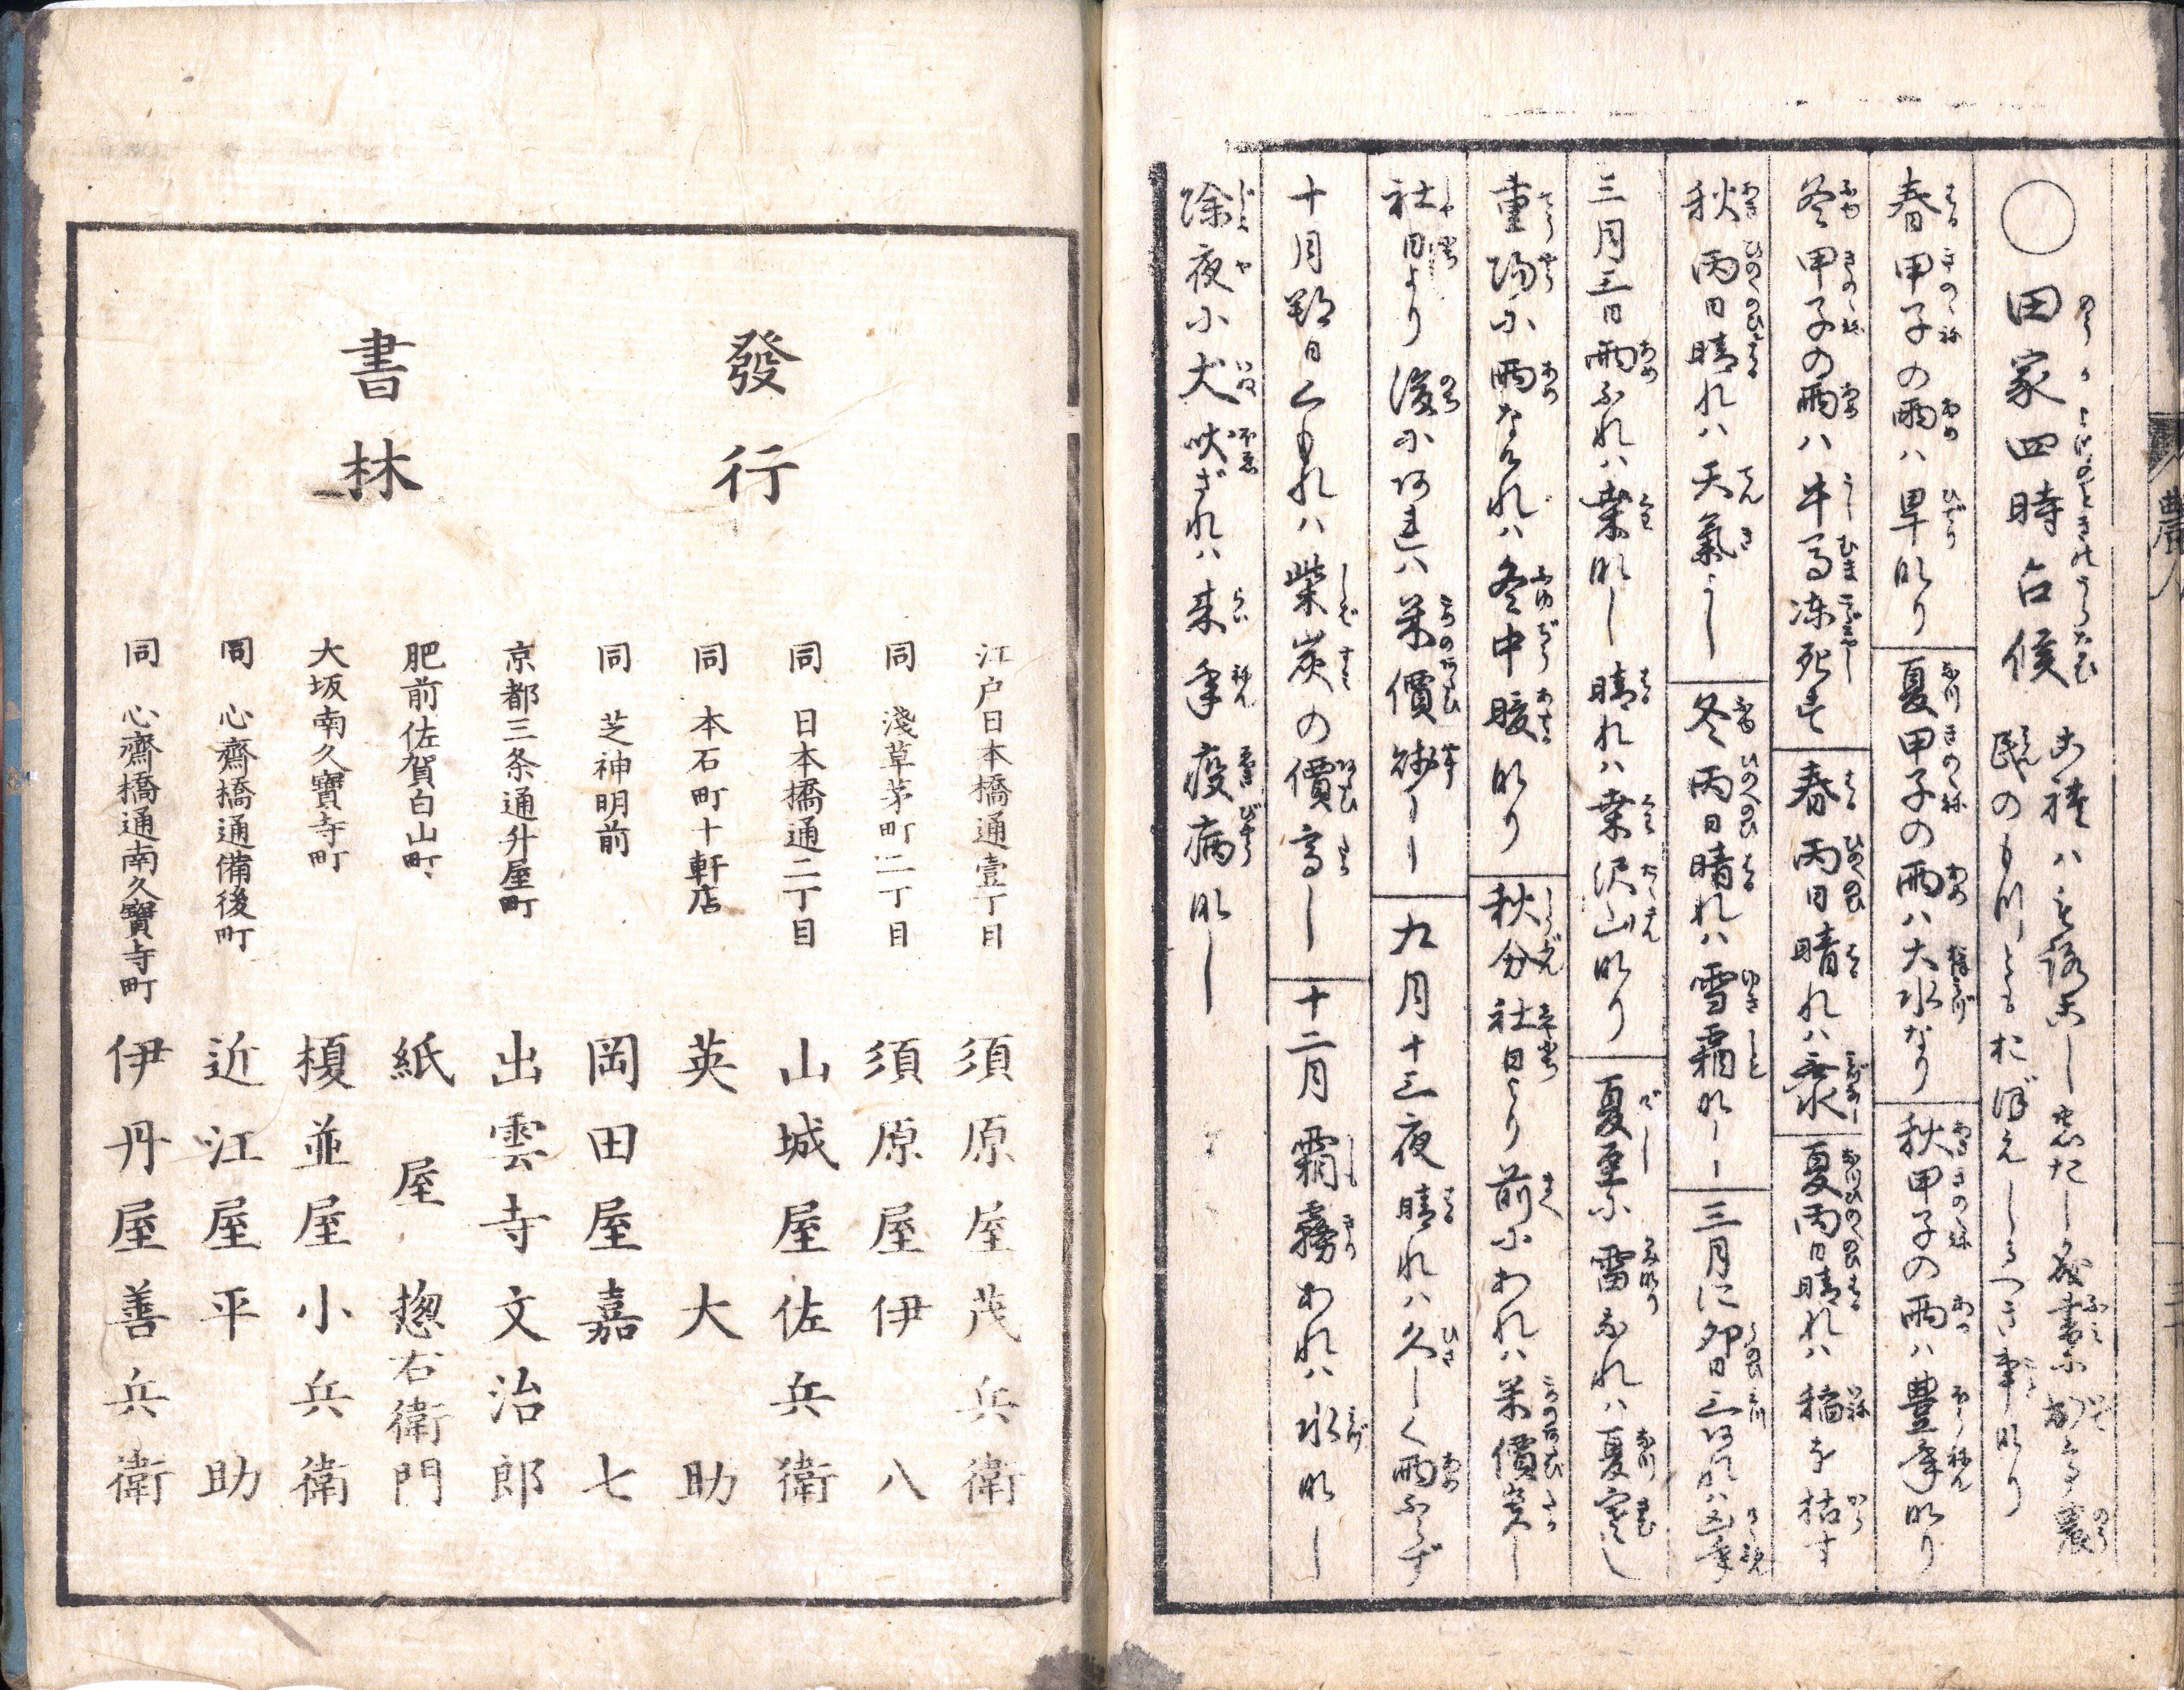 ○田家四時占候
民のもつともおぼえしるべき事なり
春甲子の雨ハ旱なり
夏甲子の雨ハ大水なり
秋甲子の雨ハ豊年なり
冬甲子の雨ハ牛馬凍死す
春丙日晴れハ
夏丙日晴れハ稲を枯す
秋丙日晴れハ天氣よし
冬丙日晴れハ雪霜なし
三月に卯日三つあれハ
三月三日雨ふれハ桑なし晴れハ桑沢山なり
夏至に雷なれハ夏寒し
重陽に雨なけれハ冬中暖なり
秋分社日より前にあれハ米價貴し
社日より後にあれハ米價
九月十三夜晴れハ久しく雨ふらず
十月朔日くもれハ柴炭の價高し
十二月霜霧あれハ水なし
除夜に犬吠ざれハ来年疫病なし
發行
書林
江戸日本橋通壹丁目 須原屋茂兵衛
同 淺草茅町二丁目 須原屋伊八
同 日本橋通二丁目 山城屋佐兵衛
同 本石町十軒店 英大助
同 芝神明前 岡田屋嘉七
京都三条通升屋町 出雲寺文治郎
肥前佐賀白山町 紙屋惣右衛門
大坂南久寶寺町 榎並屋小兵衛
同 心齋橋通備後町 近江屋平助
同 心齋橋通南久寶寺町 伊丹屋善兵衛